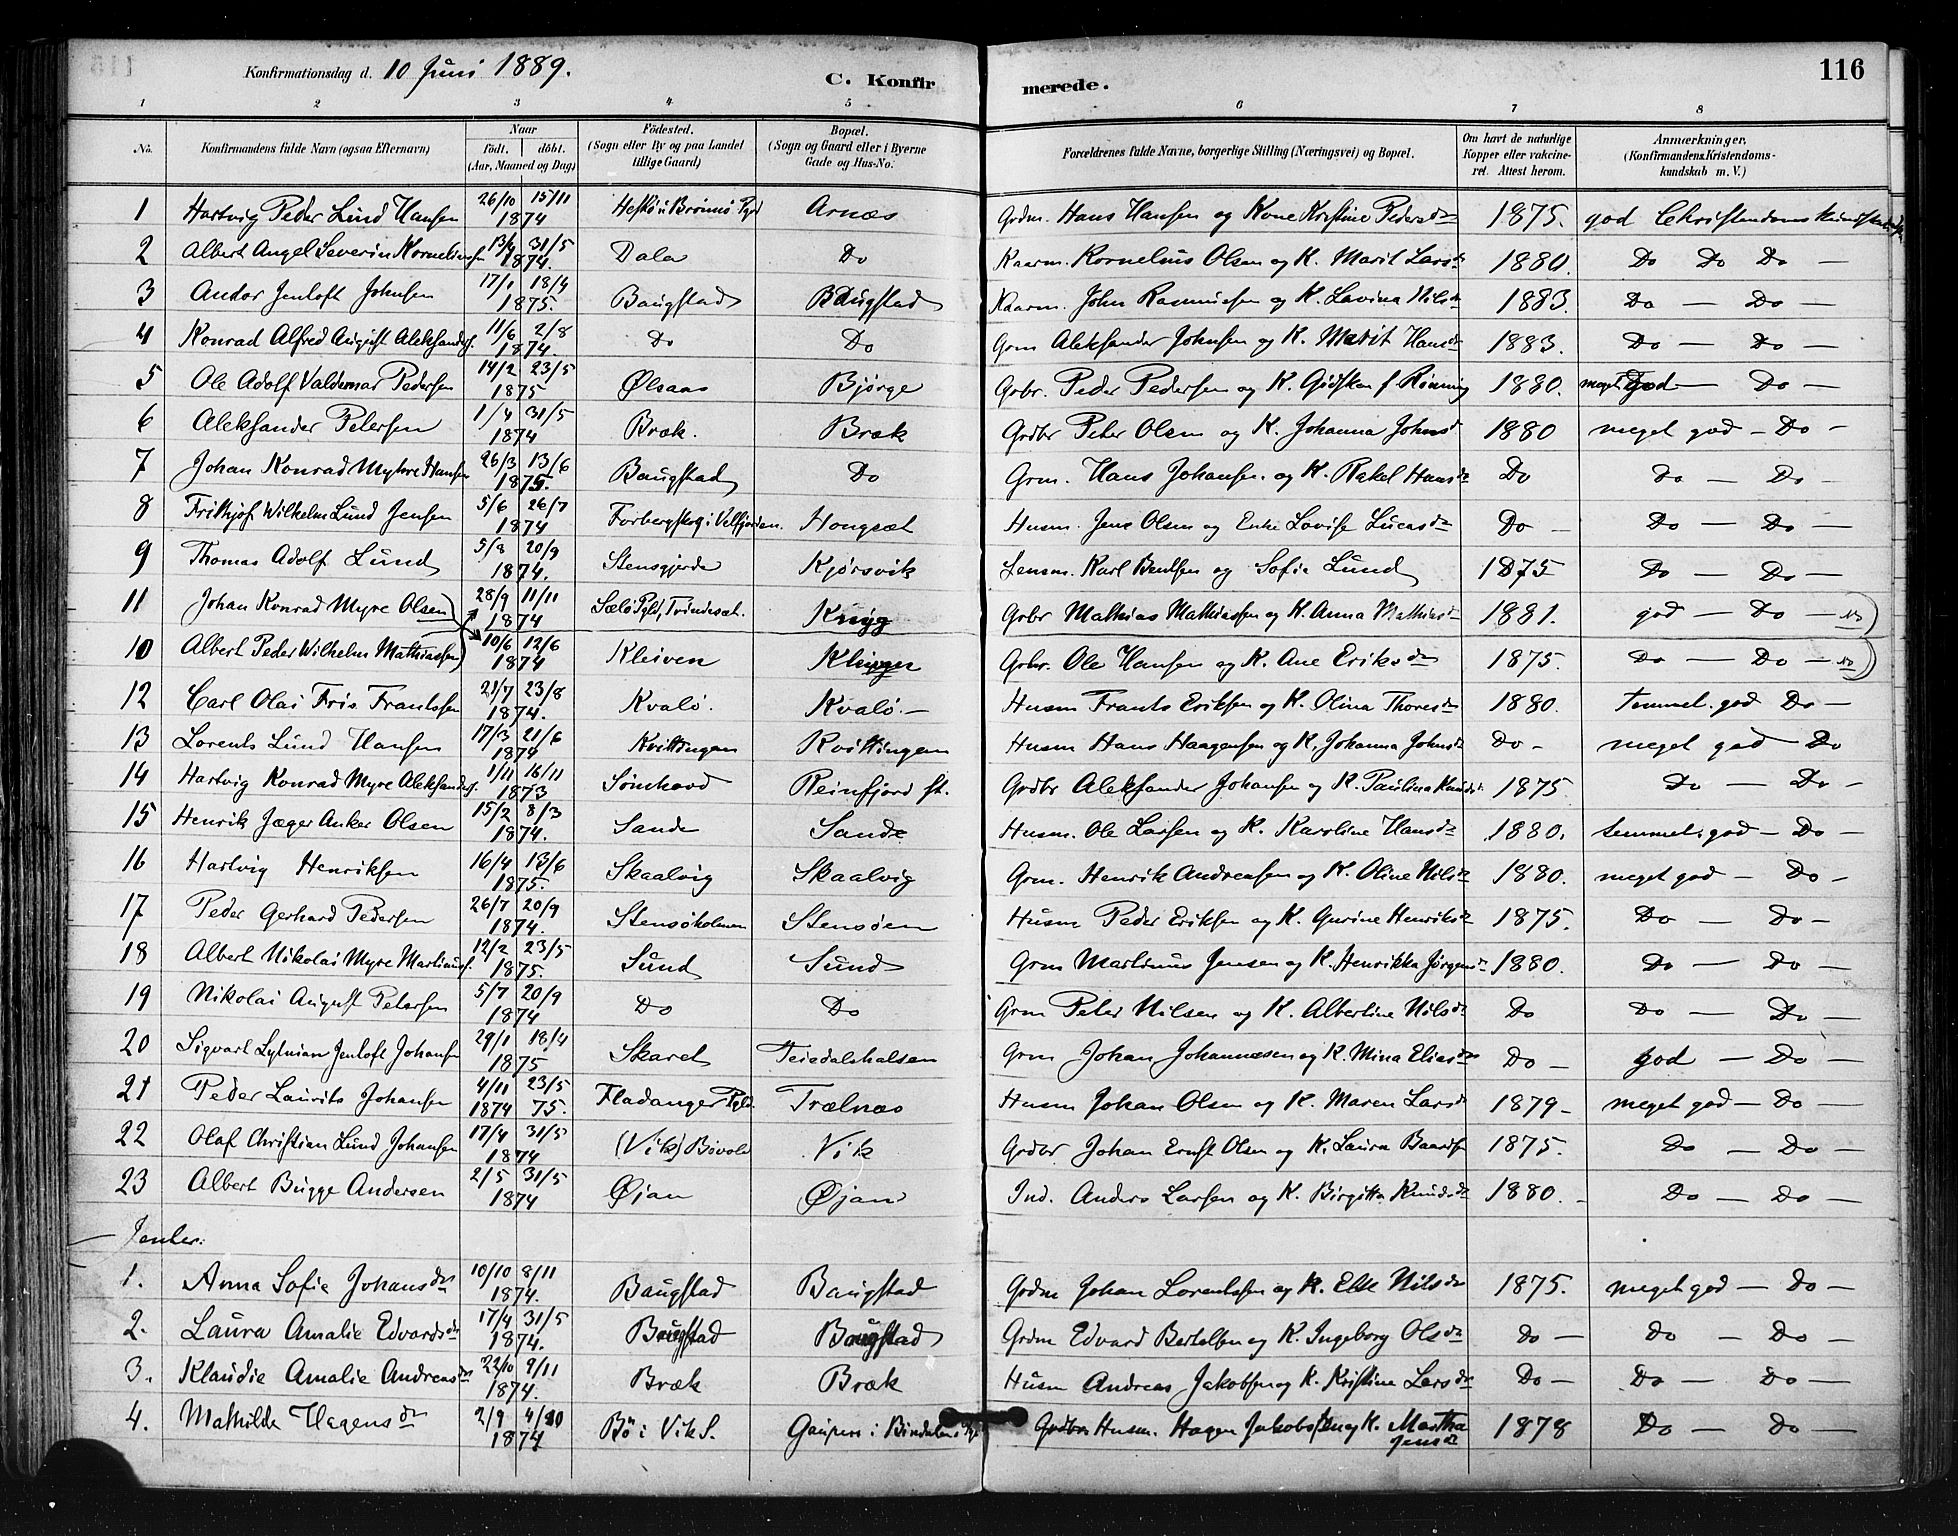 Konfirmationsdag d. 10 Juni 1889.
C. Konfirmerede.
116
1 2 3 4 5 6 7 8
No. Konfirmandens fulde Navn (ogsaa Efternavn) Naar født. døbt. (Aar, Maaned og Dag) Födested. (Sogn eller By og paa Landet tillige Gaard) Bopæl. (Sogn og Gaard eller i Byerne Gade og Hus-No. Forældrenes fulde Navne, borgerlige Stilling (Næringsvei) og Bopæl. Om havt de naturlige Kopper eller vakcineret. Attest herom. Anmærkninger. (Konfirmandens Kristendomskundskab m. V.)
1 Hartvig Peder Lund Hansen 26/10 15/11 1874 i Brönnö Pgld Arnæs Grdm. Hans Hansen og Kone Kristine Pedersdr 1875. god Christendomskundskab
2 Albert Angel Severin Korneliussen 13/4 31/5 1874. Dala Do Kaarm. Kornelius Olsen og K. Marit Larsdr 1880. Do Do Do —
3 Andor Jenloft Johnsen 17/1 18/4 1875. Baugstad Baugstad Kaarm. John Rasmussen og K. Lavina Nilsdr 1883. Do — Do —
4 Konrad Alfred August Aleksanders. 11/6 2/8 1874. Do Do Grm Aleksander Johnsen og K. Marit Hansdr 1883. Do — Do —
5 Ole Adolf Valdemar Pedersen 14/2 23/5 1875 Ølsaas Bjørge Grbr. Peder Pedersen og K. Gidsken f. Rønning 1880. meget god — Do —
6 Aleksander Petersen 1/4 31/5 1874 Bræk. Bræk Grdbr Peter Olsen og K. Johanna Johnsd 1880 meget god — Do —
7 Johan Konrad Myhre Hansen 26/3 13/6 1875. Baugstad Do Grm. Hans Johansen og K. Rakel Hansdr Do Do — Do —
8 Frithjof Wilhelm Lund Jensen 5/6 26/7 1874 Forbergskog i Velfjorden. Hongsæt Husm. Jens Olsen og Enke Lovise Lucasdr Do — Do — Do —
9 Thomas Adolf Lund 5/8 20/9 1874. Stensgjerde Kjørsvik Lensm. Karl Bentsen og Sofie Lund 1875 Do — Do —
11 Johan Konrad Myre Olsen 28/9 11/11 1874 Sælö Pgld, Trindesæt. Krüg Grbr Mathias Mathiassen og K. Anna Mathiasdr 1881. god — Do —
10 Albert Peder Wilhelm Mathiassen 10/6 12/6 1874 Kleiven Grbr. Ole Hansen og K. Ane Eriksdr 1875. Do — Do —
12 Carl Olai Fris Frantssen 21/7 23/8 1874. Kvalö. Kvalö. — Husm Frants Eriksen og K. Olina Thoresdr 1880. temmel. god Do —
13 Lorents Lund Hansen 17/3 21/6 1874 Kvittingen Kvittingen Husm Hans Haagensen og K. Johanna Johnsdr Do - meget god — Do
14 Hartvig Konrad Myre Aleksanders. 1/11 16/11 1873 Sömhovd Reinfjord st. Grdbr Aleksander Johansen og K. Paulina Knudsd. 1875 Do — Do —
15 Henrik Jæger Anker Olsen 15/2 8/3 1874. Sande Sande Husm. Ole Larsen og K. Karoline Hansdr 1880. temmel. god — Do —
16 Hartvig Henriksen 16/4 13/6 1875. Skaalvig Skaalvig Grm. Henrik Andreasen og K. Oline Nilsdr 1880. meget god — Do —
17 Peder Gerhard Pedersen 26/7 20/9 1874. Stensökolmen Stensöen Husm Peder Eriksen og K. Gurine Henriksdr 1875. Do — Do —
18 Albert Nikolai Myre Martinuss. 12/2 23/5 1875. Sund Sund Grm Martinus Jensen og K. Henrikka Jørgensdr 1880. Do — Do —
19 Nikolai August Petersen 5/7 20/9 1874 Do Do Grm Peter Nilsen og K. Albertine Nilsdr Do Do — Do —
20 Sigvart Jenloft Johansen 29/1 18/4 1875 Skaret Teisdalshalsen Grm Johan Johannesen og K Mina Eliasdr Do — god — Do —
21 Peder Laurits Johansen 4/11 23/5 1874 75. Fladanger Pgld. Trælnæs Husm Johan Olsen og K. Maren Larsdr 1879 — meget god — Do —
22 Olaf Christian Lund Johansen 17/4 31/5 1874 (Vik) Bövold Vik Grdbr Johan Ernst Olsen og K. Laura Baardsen 1875. Do — Do —
23 Albert Bugge Andersen 2/5 31/5 1874 Øjan Øjan Ind. Anders Larsen og K. Birgitta Knudsdr 1880. — Do — Do —
Jenter.
1. Anna Sofie Johansdr 10/10 8/11 1874. Baugstad Baugstad Grdm Johan Lorentssen og K. Else Nilsdr 1875. meget god — Do —
2. Laura Amalie Edvardsdr 17/4 31/5 1874. Baugstad Baugstad Grdm Edvard Bertelsen og K. Ingeborg Olsdr Do — Do — Do —
3. Klaudie Amalie Andreasdr 22/10 9/11 1874. Bræk Bræk Husm Andreas Jakobsen og K. Kristine Larsdr Do — Do — Do —
4. Mathilde Hagensdr 2/9 4/10 1874 Bö i Vik S. i Bindalens Pgl Husm. Hagen Jakobsen og K. Martha Jensdr 1878 Do — Do —